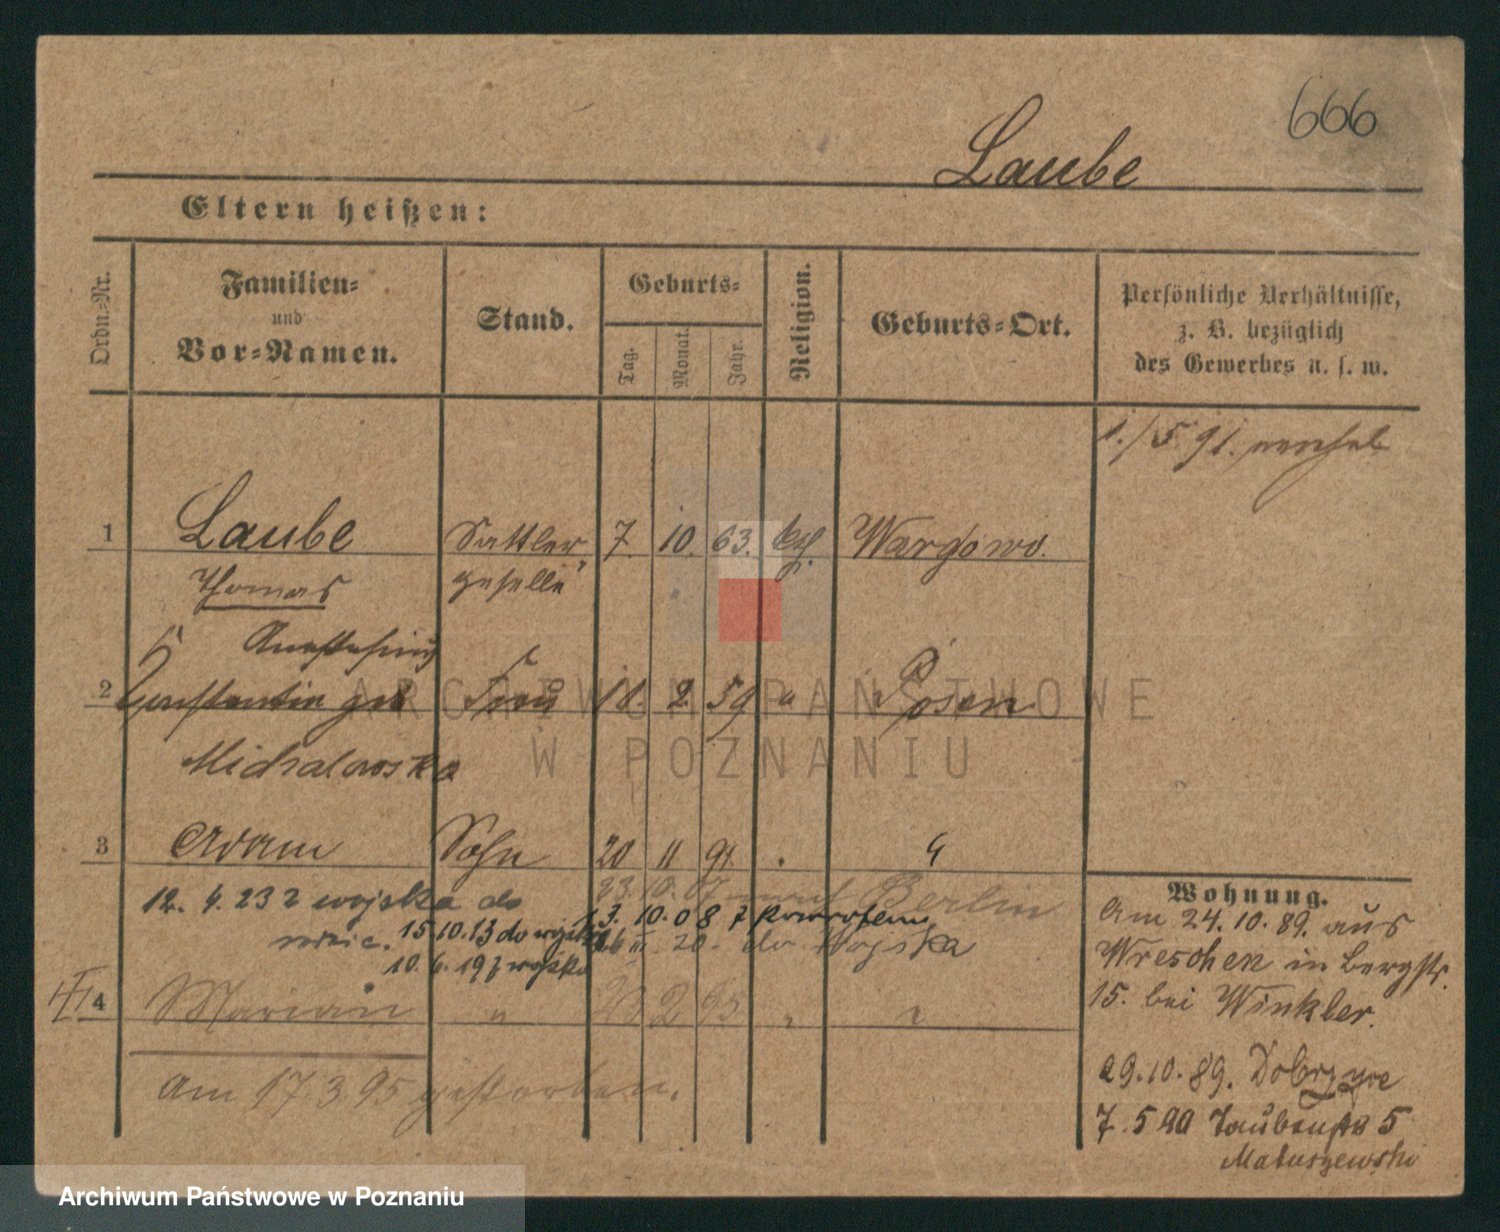 666
Laube
Eltern heißen:
Ordn.-Nr.
Familien-
und
Vor-Namen.
Stand.
Geburts-
Tag.
Monat.
Jahr.
Religion.
Geburts-Ort.
Persönliche Verhältnisse,
z. B. bezüglich
des Gewerbes u. s. w.
1./5 91.
1 Laube Sattler 7. 10. 63. kth. Wargowo.
Thomas geselle
2 Constantia geb Frau 18. 2. 59 " Posen
Michalowska
3 Adam Sohn 20 11 91 "
12. 4. 23 z wojska do
23. 10. 07 Berlin
15 10. 13 do wojska 13. 10. 08 z powrotem
20. do Wojska
10. 6. 19 z wojska
4 Marian " 23 2 95 " "
am 17. 3. 95 gestorben.
Wohnung.
Am 24. 10. 89. aus
Wreschen in Bergstr.
15. bei Winkler.
29. 10. 89. Dobrzyce
7. 5 90 Taubenstr 5
Matuszewski
ARCHIWUM PAŃSTWOWE
W POZNANIU
Archiwum Państwowe w Poznaniu